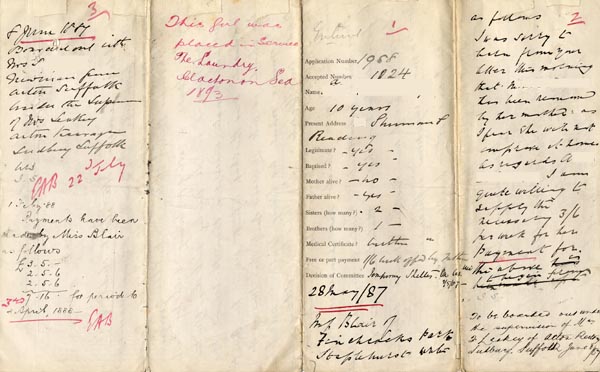 3
8 June 1887
Boarded out with
Mrs F
Newman
Acton Suffolk
under the
of Mrs Leakey
Acton
Sudbury Suffolk
5/-
EAB 22 July
1 July 88
Payments have been
made by Miss Blair
as follows
£3. 5. -
2. 5. 6
2. 5. 6
7. 16. - for period to
2 April, 1888
EAB
This girl was
placed in Service
The Laundry,
Clacton on Sea
1893
1
Entered
Application Number 1968
Accepted Number 1024
Name,
Age 10 years
Present Address
Reading
Legitimate? - Yes -
Baptised? - Yes -
Mother alive? - no -
Father alive? - Yes -
Sisters (how many)? - 2 -
Brothers (how many)? 1 -
Medical Certificate? written
Free or part payment 1/6 week offd by father
Decision of Committee Temporary Shelter
28 May/87
Miss Blair of
Finchcocks Park
Staplehurst writes
2
as follows
I was sorry to
hear from you
after this morning
that M
has been removed
by her mother; as
I fear she will not
improve at home
As regards A
I am
quite willing to
supply the
necessary 3/6
per week for her
Payment for
the above
To be boarded out under
the supervision of Mrs
Leakey of Acton
Sudbury, Suffolk, June /87